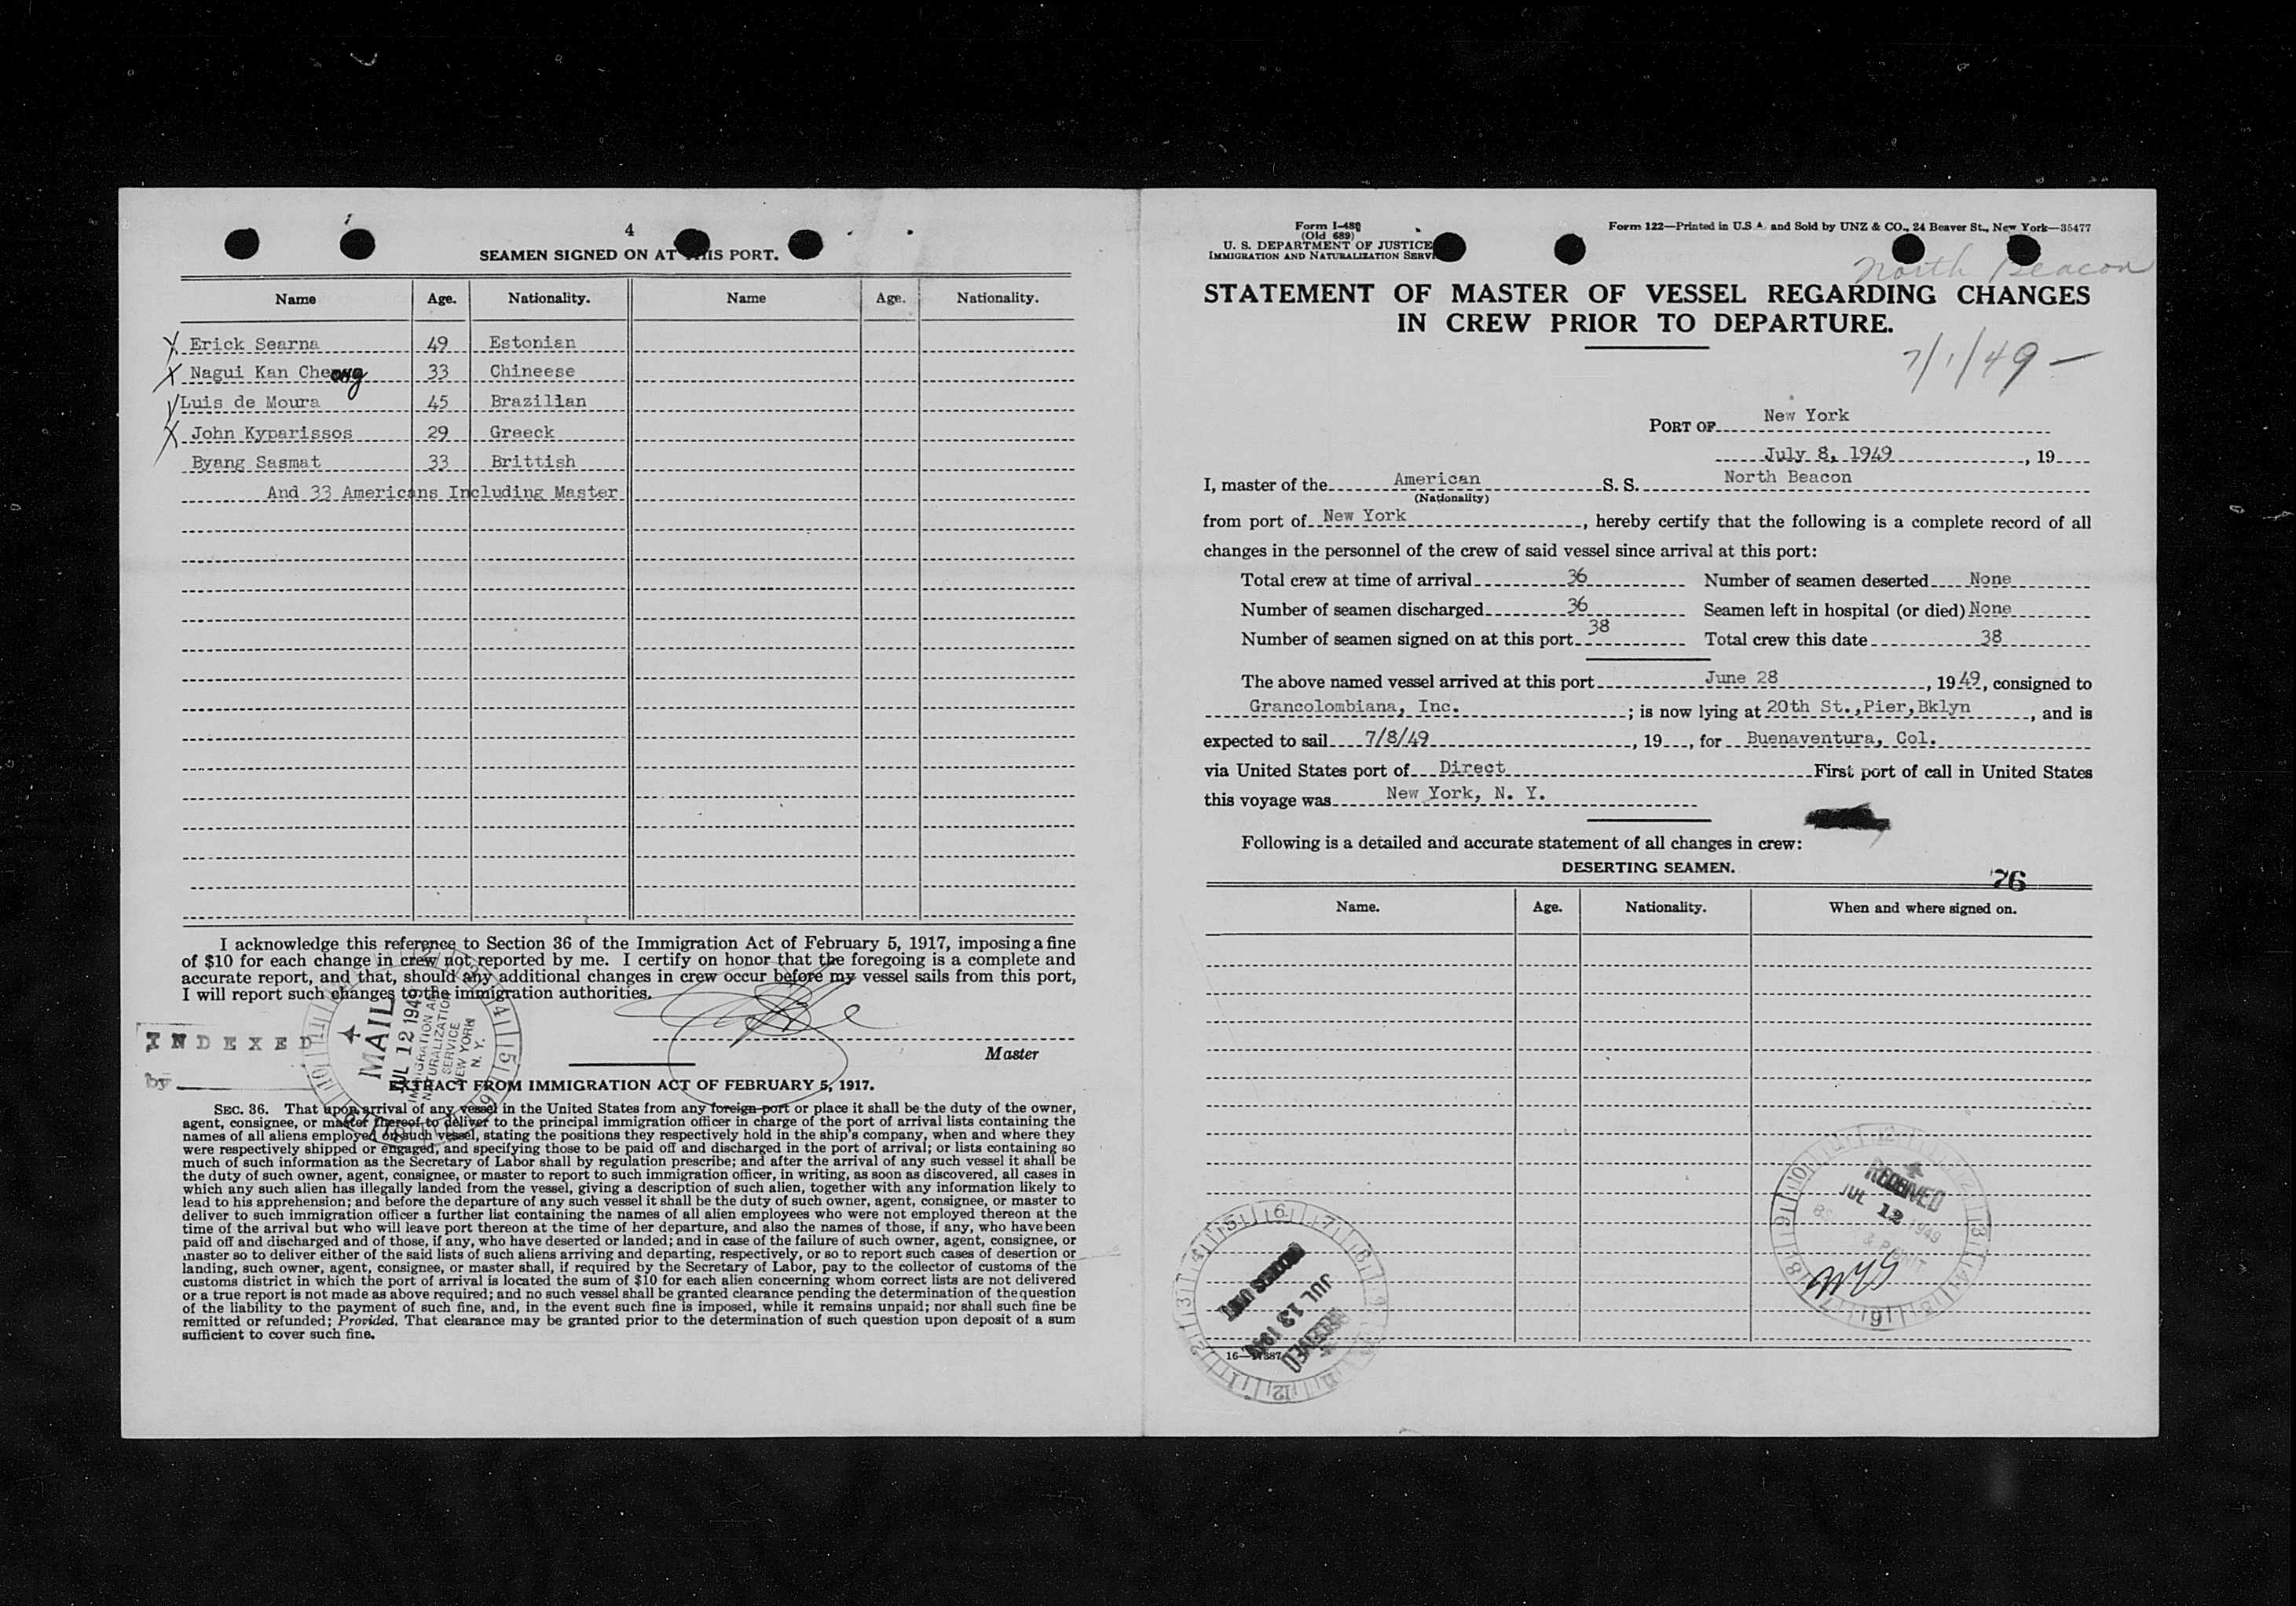 4
SEAMEN SIGNED ON AT THIS PORT.
Name Age. Nationality. Name Age. Nationality.
X Erick Searna 49 Estonian
X Nagui Kan Cheong 33 Chineese
Luis de Moura 45 Brazilian
X John Kyparissos 29 Greeck
Byang Sasmat 33 Brittish
And 33 Americans Including Master
I acknowledge this reference to Section 36 of the Immigration Act of February 5, 1917, imposing a fine
of $10 for each change in crew not reported by me. I certify on honor that the foregoing is a complete and
accurate report, and that, should any additional changes in crew occur before my vessel sails from this port,
I will report such changes to the immigration authorities.
Master
INDEXED
by
MAIL
JUL 12 1949
IMMIGRATION AND
NATURALIZATION
SERVICE
NEW YORK
N. Y.
EXTRACT FROM IMMIGRATION ACT OF FEBRUARY 5, 1917.
SEC. 36. That upon arrival of any vessel in the United States from any foreign port or place it shall be the duty of the owner,
agent, consignee, or master thereof to deliver to the principal immigration officer in charge of the port of arrival lists containing the
names of all aliens employed on such vessel, stating the positions they respectively hold in the ship's company, when and where they
were respectively shipped or engaged, and specifying those to be paid off and discharged in the port of arrival; or lists containing so
much of such information as the Secretary of Labor shall by regulation prescribe; and after the arrival of any such vessel it shall be
the duty of such owner, agent, consignee, or master to report to such immigration officer, in writing, as soon as discovered, all cases in
which any such alien has illegally landed from the vessel, giving a description of such alien, together with any information likely to
lead to his apprehension; and before the departure of any such vessel it shall be the duty of such owner, agent, consignee, or master to
deliver to such immigration officer a further list containing the names of all alien employees who were not employed thereon at the
time of the arrival but who will leave port thereon at the time of her departure, and also the names of those, if any, who have been
paid off and discharged and of those, if any, who have deserted or landed; and in case of the failure of such owner, agent, consignee, or
master so to deliver either of the said lists of such aliens arriving and departing, respectively, or so to report such cases of desertion or
landing, such owner, agent, consignee, or master shall, if required by the Secretary of Labor, pay to the collector of customs of the
customs district in which the port of arrival is located the sum of $10 for each alien concerning whom correct lists are not delivered
or a true report is not made as above required; and no such vessel shall be granted clearance pending the determination of the question
of the liability to the payment of such fine, and, in the event such fine is imposed, while it remains unpaid; nor shall such fine be
remitted or refunded; Provided, That clearance may be granted prior to the determination of such question upon deposit of a sum
sufficient to cover such fine.
Form I-489
(Old 689)
U. S. DEPARTMENT OF JUSTICE
IMMIGRATION AND NATURALIZATION SERVI
Form 122—Printed in U.S.A. and Sold by UNZ & CO., 24 Beaver St., New York—35477
North Beacon
STATEMENT OF MASTER OF VESSEL REGARDING CHANGES
IN CREW PRIOR TO DEPARTURE.
7/1/49 —
PORT OF New York
July 8, 1949, 19
I, master of the American S. S. North Beacon
(Nationality)
from port of New York, hereby certify that the following is a complete record of all
changes in the personnel of the crew of said vessel since arrival at this port:
Total crew at time of arrival 36 Number of seamen deserted None
Number of seamen discharged 36 Seamen left in hospital (or died) None
Number of seamen signed on at this port 38 Total crew this date 38
The above named vessel arrived at this port June 28, 1949, consigned to
Grancolombiana, Inc. ; is now lying at 20th St.,Pier,Bklyn, and is
expected to sail 7/8/49, 19, for Buenaventura, Col.
via United States port of Direct First port of call in United States
this voyage was New York, N. Y.
Following is a detailed and accurate statement of all changes in crew:
DESERTING SEAMEN.
76
Name. Age. Nationality. When and where signed on.
RECEIVED
JUL 12 1949
JUL 13 1949
RECEIVED